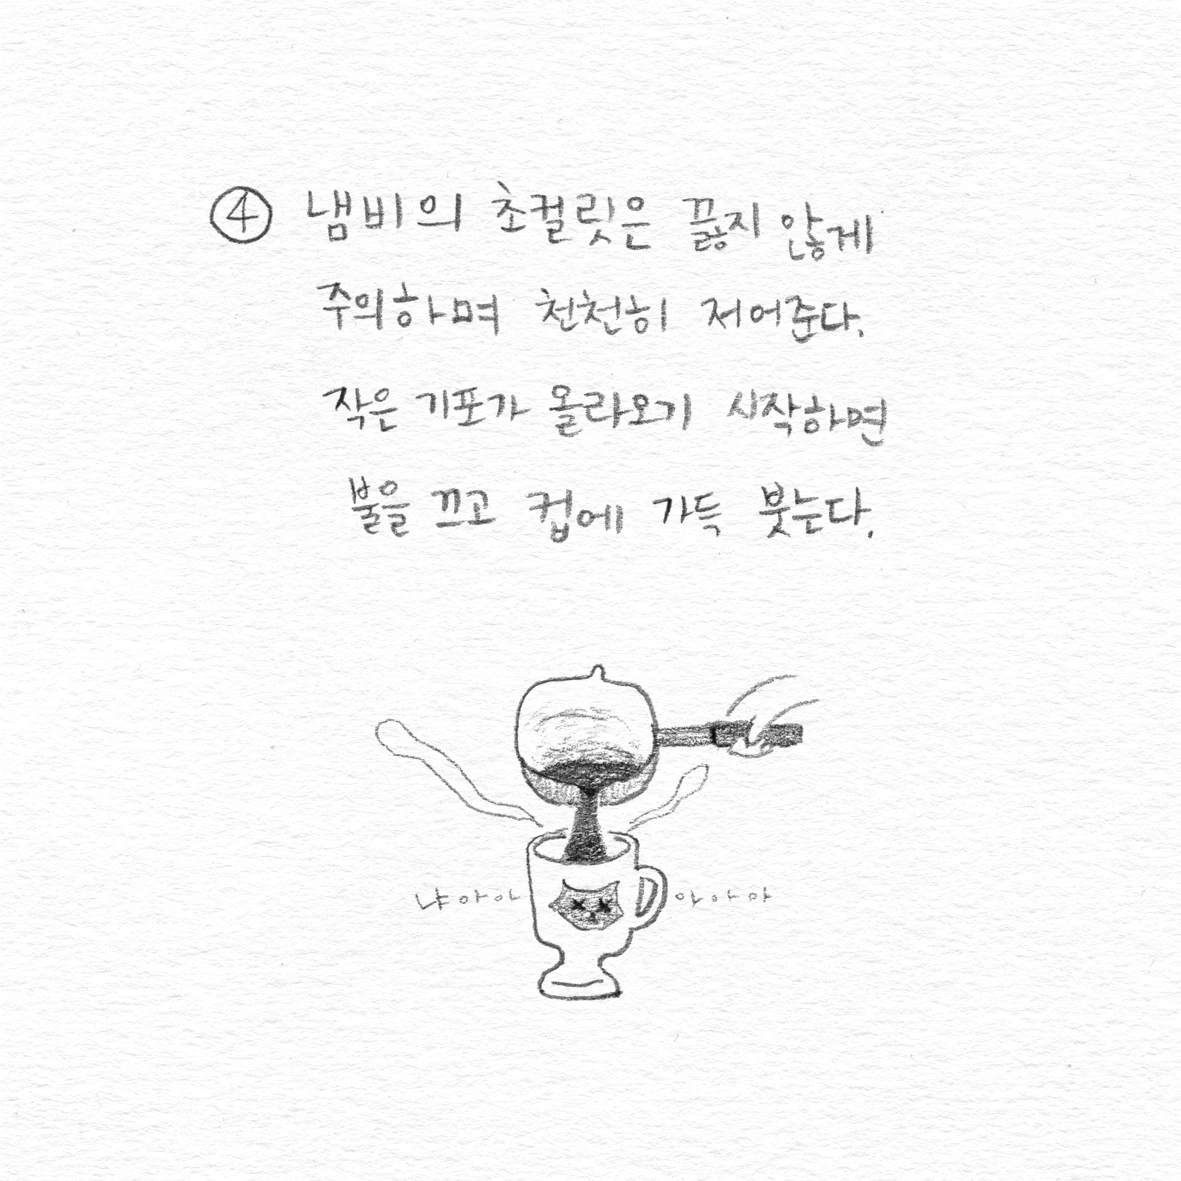 ④ 냄비의 초컬릿은 끓지 않게
주의하며 천천히 저어준다.
작은 기포가 올라오기 시작하면
불을 끄고 컵에 가득 붓는다.
냐아아 아아아